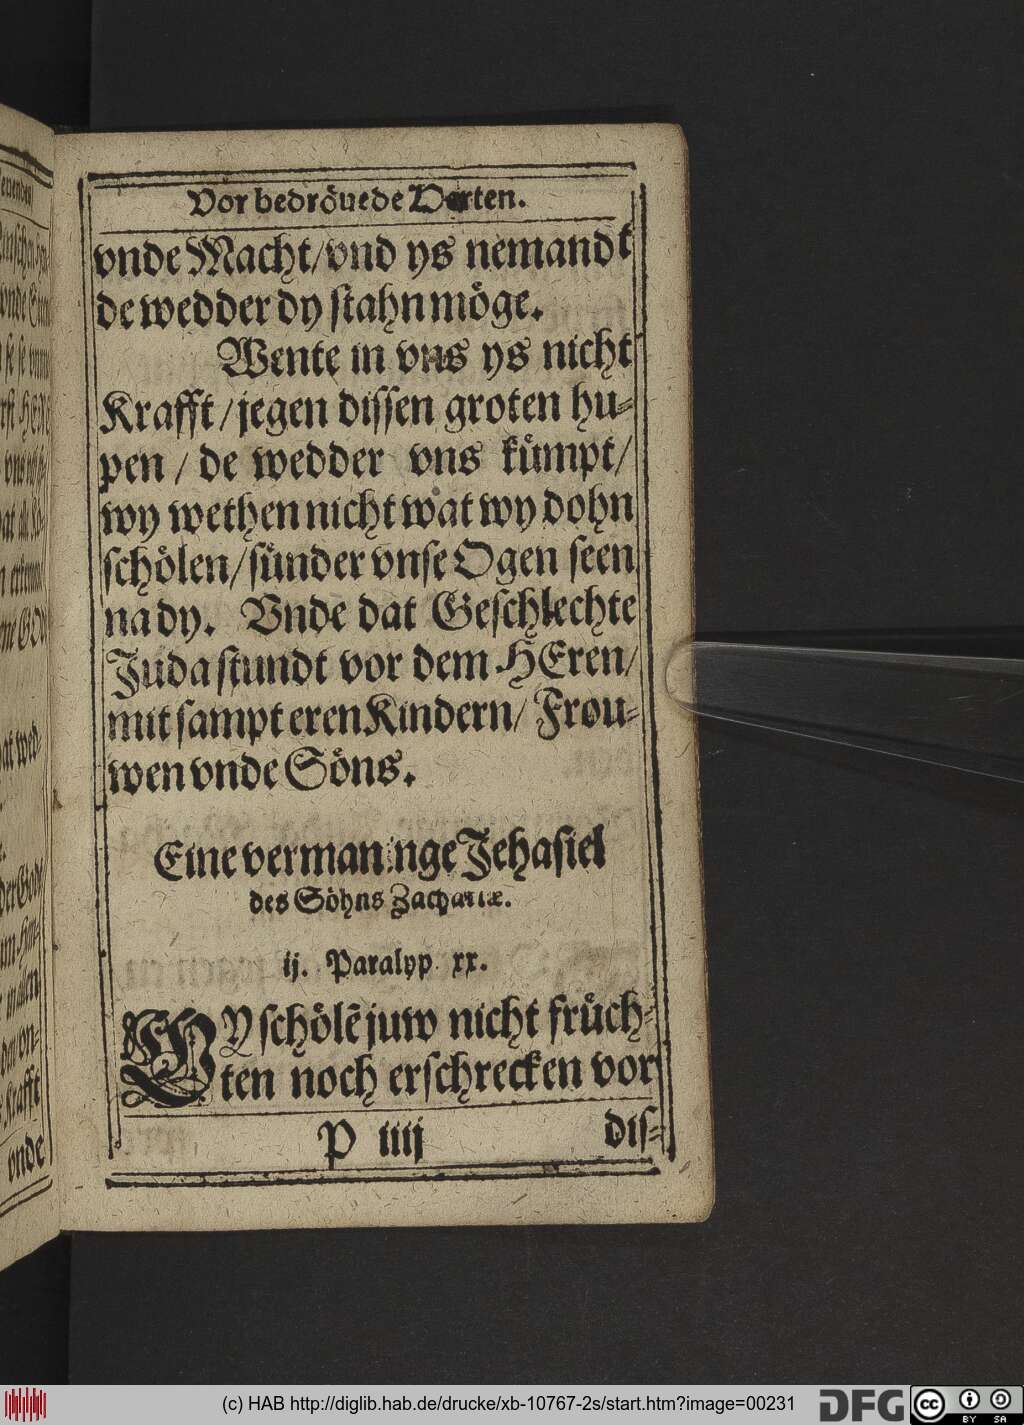 Vor bedroͤuede Herten.
vnde Macht/ vnd ys nemandt
de wedder dy stahn moͤge.
Wente in vns ys nicht
Krafft/ jegen dissen groten hu-
pen/ de wedder vns kuͤmpt/
wy wethen nicht wat wy dohn
schoͤlen/ suͤnder vnse Ogen seen
na dy. Vnde dat Geschlechte
Juda stundt vor dem HEren/
mit sampt eren Kindern/ Frou-
wen vnde Soͤns.
Eine vermaninge Jehasiel
des Soͤhns Zachariæ.
ij. Paralyp xx.
GY schoͤlẽ juw nicht fruͤch-
ten noch erschrecken vor
P iiij
dis-
vnde
(c) HAB http://diglib.hab.de/drucke/xb-10767-2s/start.htm?image=00231
DFG
cc
BY SA